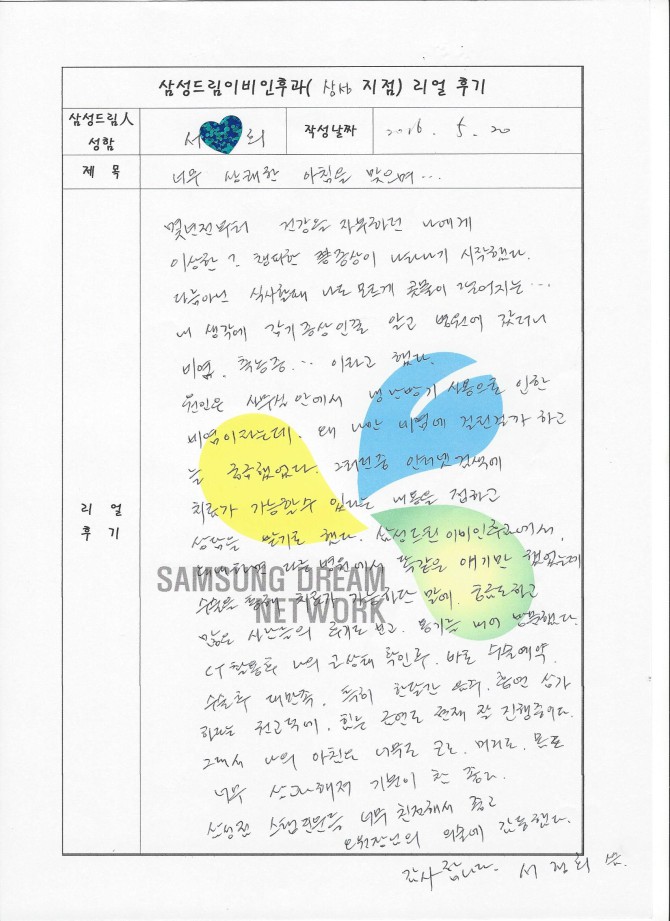 삼성드림이비인후과( 지점) 리얼 후기
삼성드림人
성함
서 희
작성날짜
2016. 5. 20
제 목
너무 상쾌한 아침을 맞으며...
몇년전부터 건강을 자부하던 나에게
이상한 증상이 나타나기 시작했다.
다름아닌 식사할때 나도 모르게 콧물이 떨어지는...
내 생각에 감기증상인줄 알고 병원에 갔더니
비염. 축농증... 이라고 했다.
원인은 사무실 안에서 냉난방기 사용으로 인한
비염이라는데. 왜 나만 비염에 걸린걸가 하고
늘 궁금했었다. 그러던중 인터넷검색에
리 얼
후 기
치료가 가능할수 있다는 내용을 접하고
상담을 받기로 했다. 삼성드림이비인후과에서.
다른 병원에서 똑같은 얘기만 했었는데
SAMSUNG DREAM
NETWORK
수술을 통해 치료가 가능하단 말에.
많은 사람들의 후기도 보고. 용기를 내어 방문했다.
CT촬영후 나의 코상태 확인후. 바로 수술예약.
수술후 대만족. 특히 한달간 음주. 흡연 삼가
하라는 권고덕에. 힘든 금연도 현재 잘 진행중이다.
그래서 나의 아침은 너무도 코도. 머리도. 몸도
너무 상쾌해져 기분이 참 좋다.
너무 친절해서 좋고
원장님의 의술에 감동했다.
감사합니다. 서 희